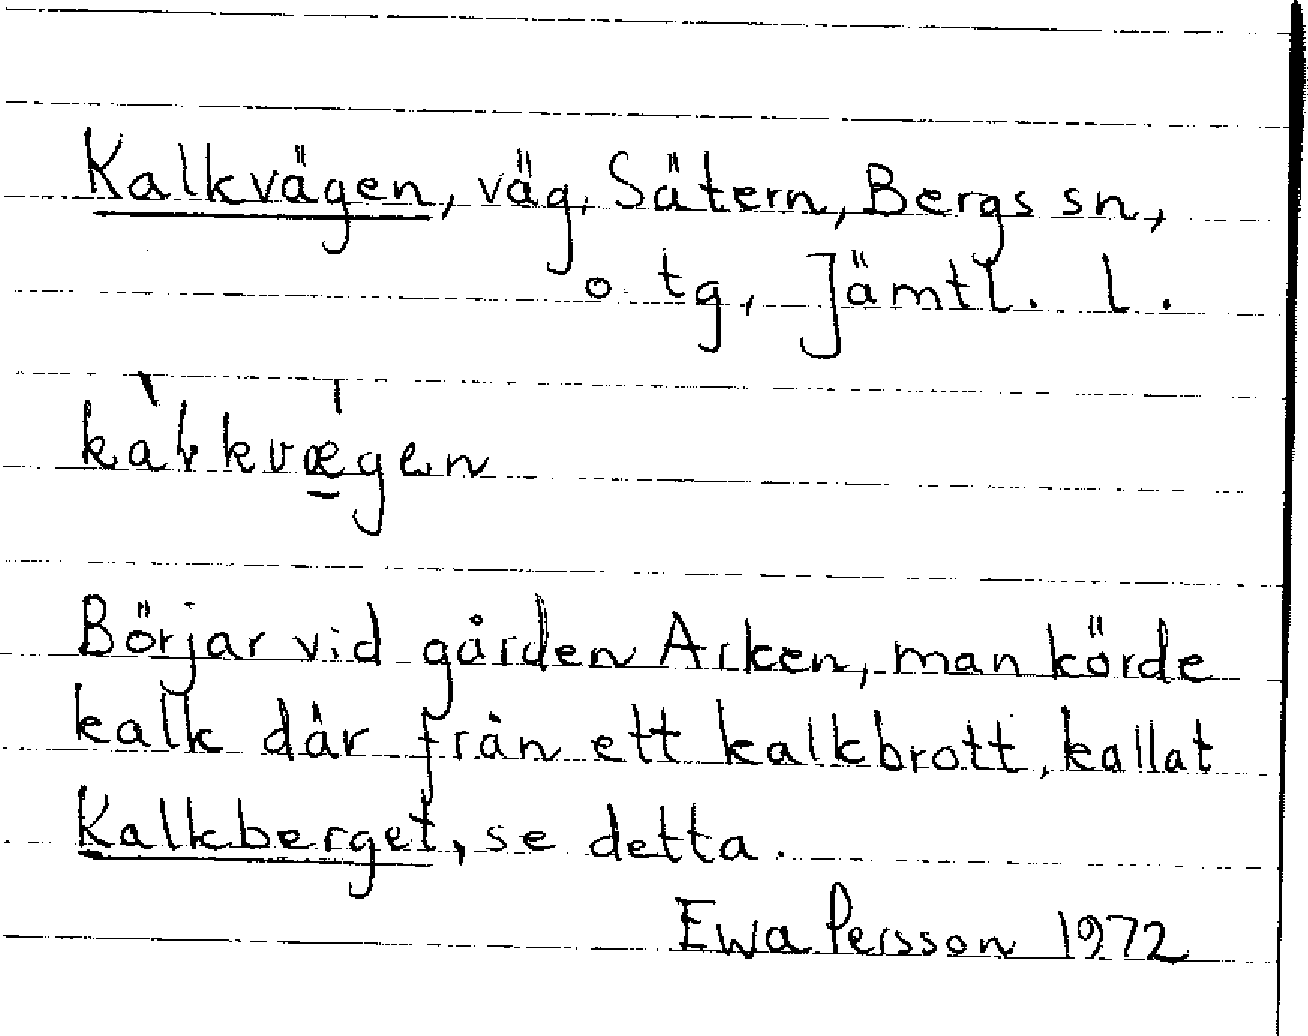 Kalkvägen, väg, Sätern, Bergs sn,
o tg, Jämtl. l.
Börjar vid gården Arken, man körde
kalk där från ett kalkbrott, kallat
Kalkberget, se detta.
Ewa Persson 1972